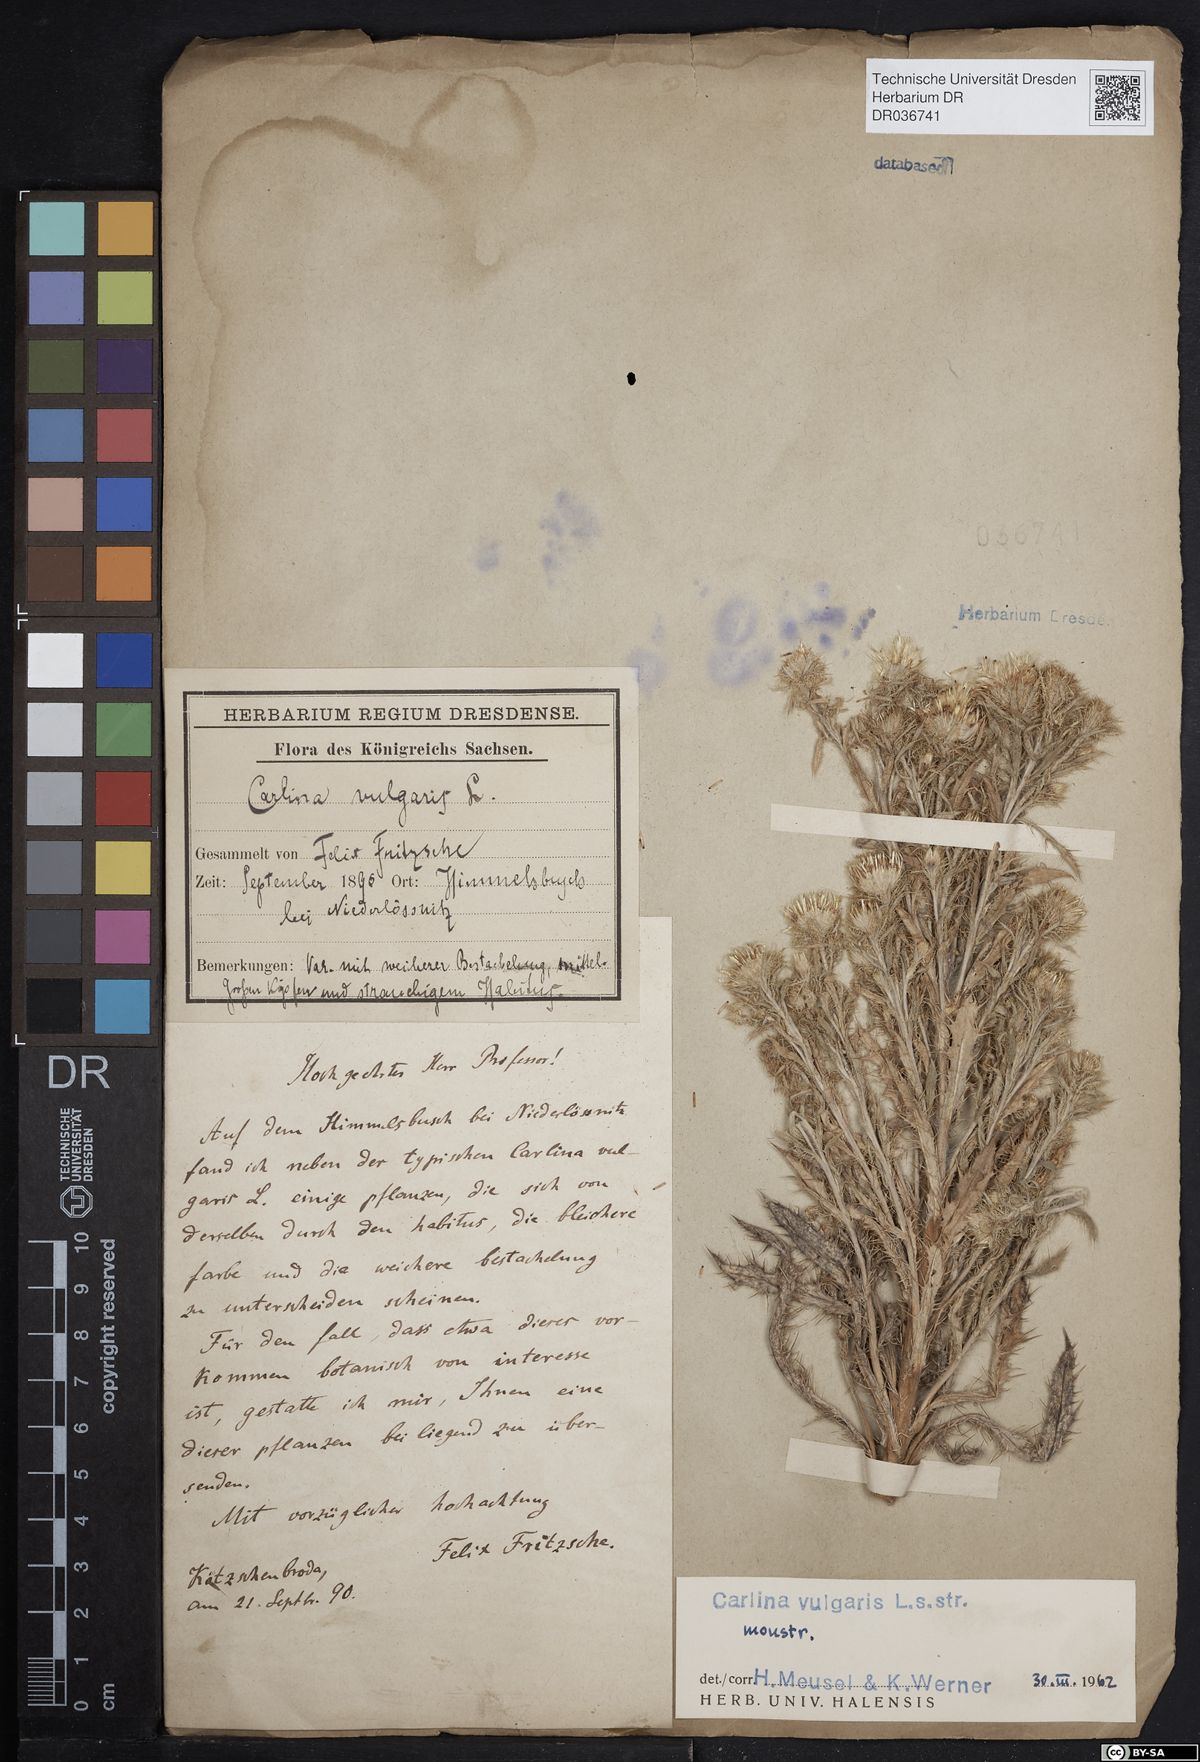 Technische Universität Dresden
Herbarium DR
DR036741
databased
036741
Herbarium Dresde
HERBARIUM REGIUM DRESDENSE.
Flora des Königreichs Sachsen.
Carlina vulgaris L.
Gesammelt von Felix Fritzsche
Zeit: September 1890 Ort: Himmelsbusch
bei Niederlössnitz
Bemerkungen: Var. mit weicherer Bestachelung, mittel-
großen Köpfen und strauchigem Habitus.
Hochgeehrter Herr Professor!
Auf dem Himmelsbusch bei Niederlössnitz
fand ich neben der typischen Carlina vul-
garis L. einige pflanzen, die sich von
derselben durch den habitus, die bleichere
farbe und die weichere bestachelung
zu unterscheiden scheinen.
Für den fall, dass etwa dieses vor-
kommen botanisch von interesse
ist, gestatte ich mir, Ihnen eine
dieser pflanzen beiliegend zu über-
senden.
Mit vorzüglicher hochachtung
Felix Fritzsche.
Kötzschenbroda,
am 21. Septbr. 90.
Carlina vulgaris L.s.str.
monstr.
det./corr. H. Meusel & K. Werner 30.III.1962
HERB. UNIV. HALENSIS
DR
TECHNISCHE
UNIVERSITÄT
DRESDEN
10
9
8
7
6
5
4
3
2
1
0
cm
copyright reserved
cc BY-SA